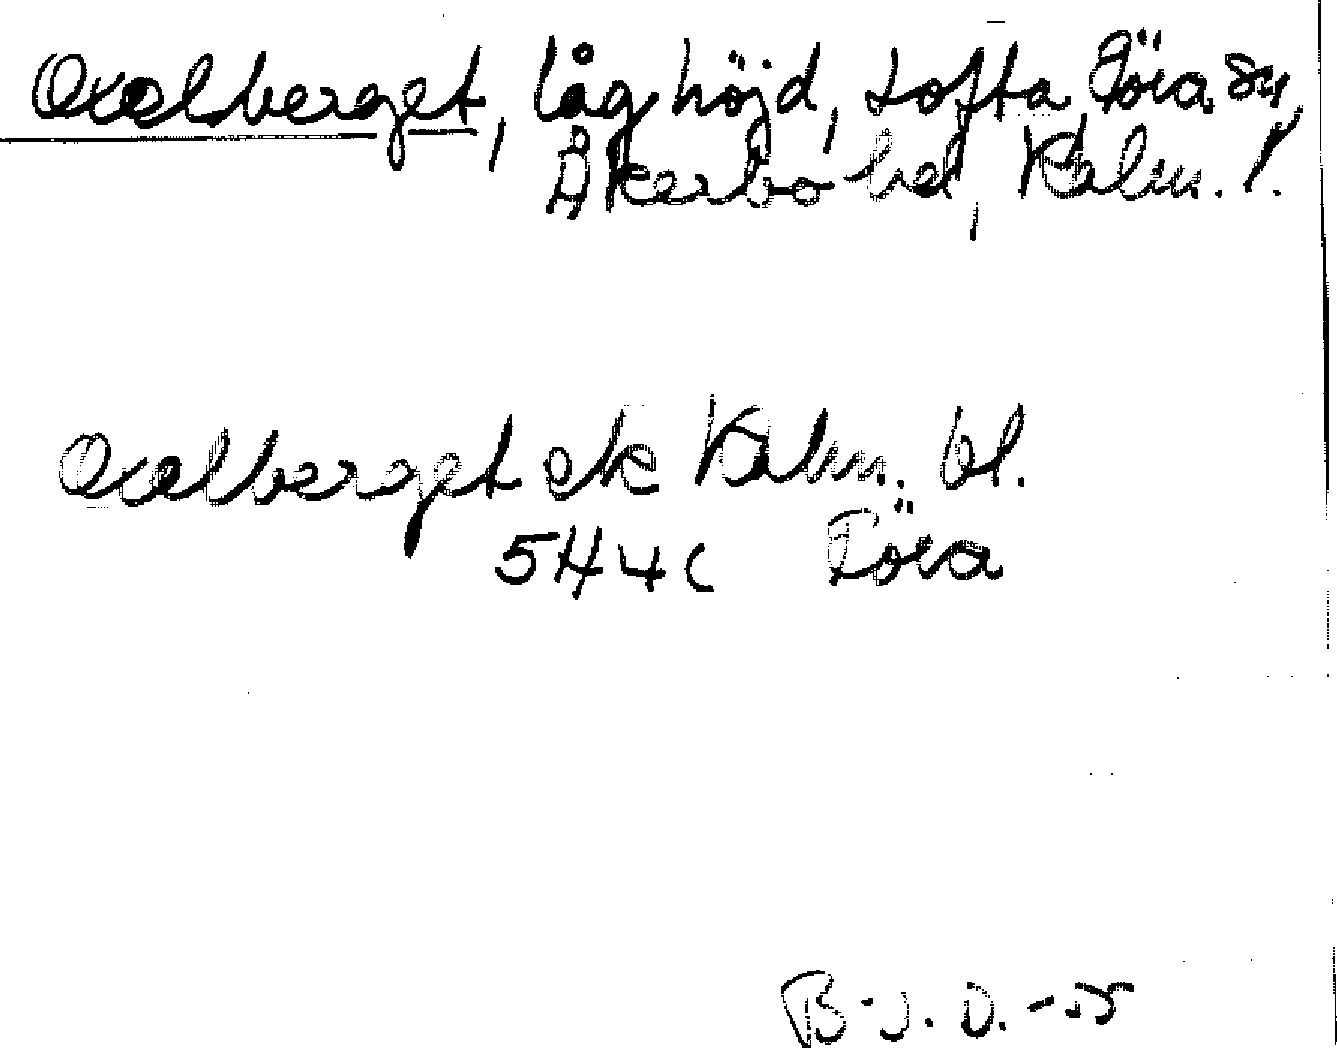 Oxelberget, låg höjd, Tofta Föra sn,
Åkerbo hd, Kalm. l.
Oxelberget ek Kalm. bl.
5H4c Föra
B-J. D. -75